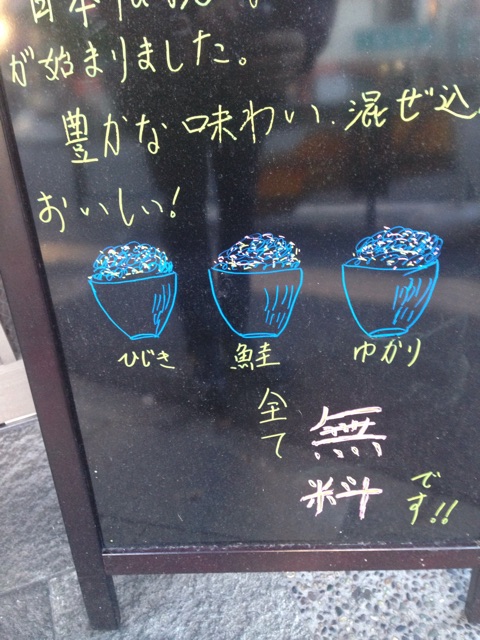 日本
が始まりました。
豊かな味わい、混ぜ込
おいしい!
ひじき 鮭 ゆかり
全て 無料 です!!